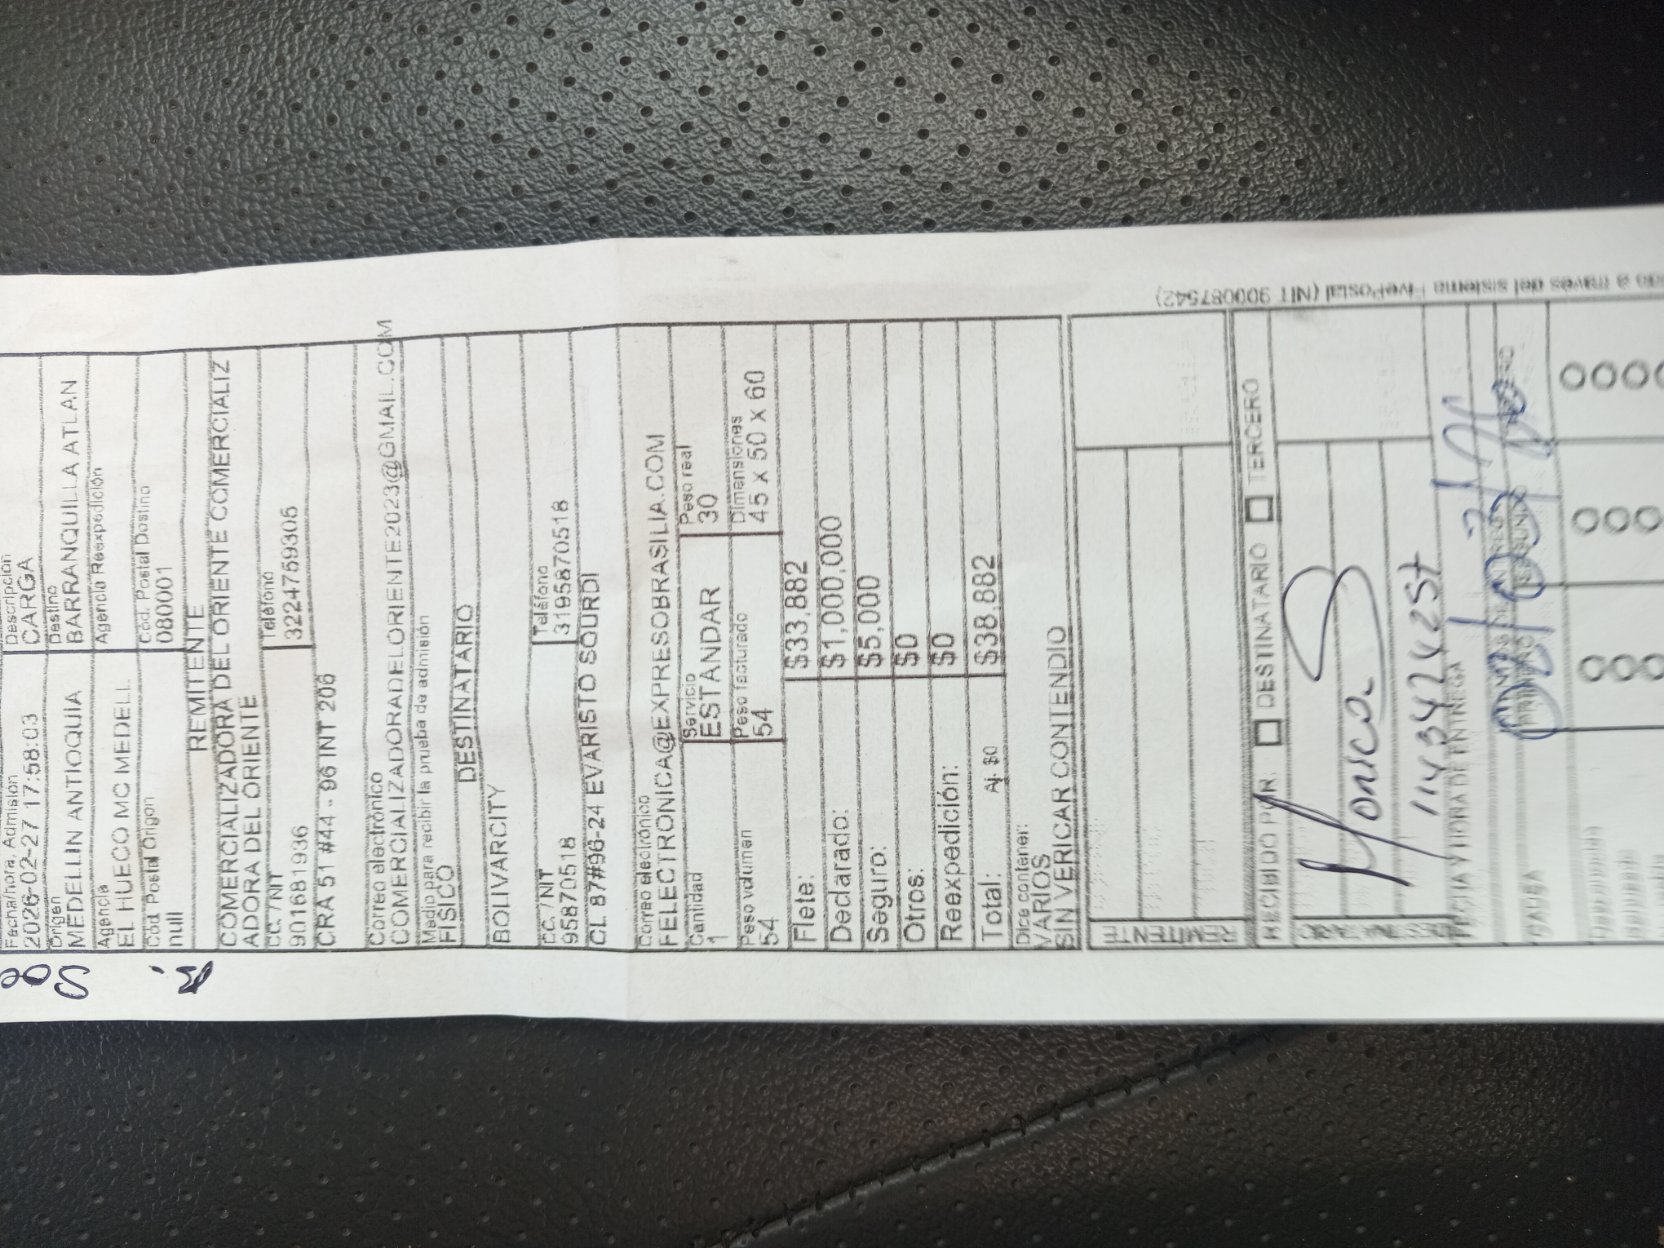 Fecha/hora. Admisión Descripción
2026-02-27 17:58:03 CARGA
Origen Destino
MEDELLIN ANTIOQUIA BARRANQUILLA ATLAN
Agencia Agencia Reexpedición
EL HUECO MC MEDELL
Cód. Postal Origen Cód. Postal Destino
null 080001
REMITENTE
COMERCIALIZADORA DEL ORIENTE COMERCIALIZ
ADORA DEL ORIENTE
CC. / NIT Teléfono
901681936 3224759305
CRA 51 #44 - 96 INT 206
Correo electrónico
COMERCIALIZADORADELORIENTE2023@GMAIL.COM
Medio para recibir la prueba de admisión
FISICO
DESTINATARIO
BOLIVARCITY
CC. / NIT Teléfono
95870518 3195870518
CL 87#96-24 EVARISTO SOURDI
Correo electrónico
FELECTRONICA@EXPRESOBRASILIA.COM
Cantidad Servicio Peso real
1 ESTANDAR 30
Peso volumen Peso facturado Dimensiones
54 54 45 x 50 x 60
Flete: $33,882
Declarado: $1,000,000
Seguro: $5,000
Otros: $0
Reexpedición: $0
Total: Aj. $0 $38,882
Dice contener:
VARIOS
SIN VERICAR CONTENDIO
REMITENTE
RECIBIDO POR DESTINATARIO TERCERO
DESTINATARIO
Monica
FECHA Y HORA DE ENTREGA
CAUSA
a través del sistema FivePostal (NIT 900087542)